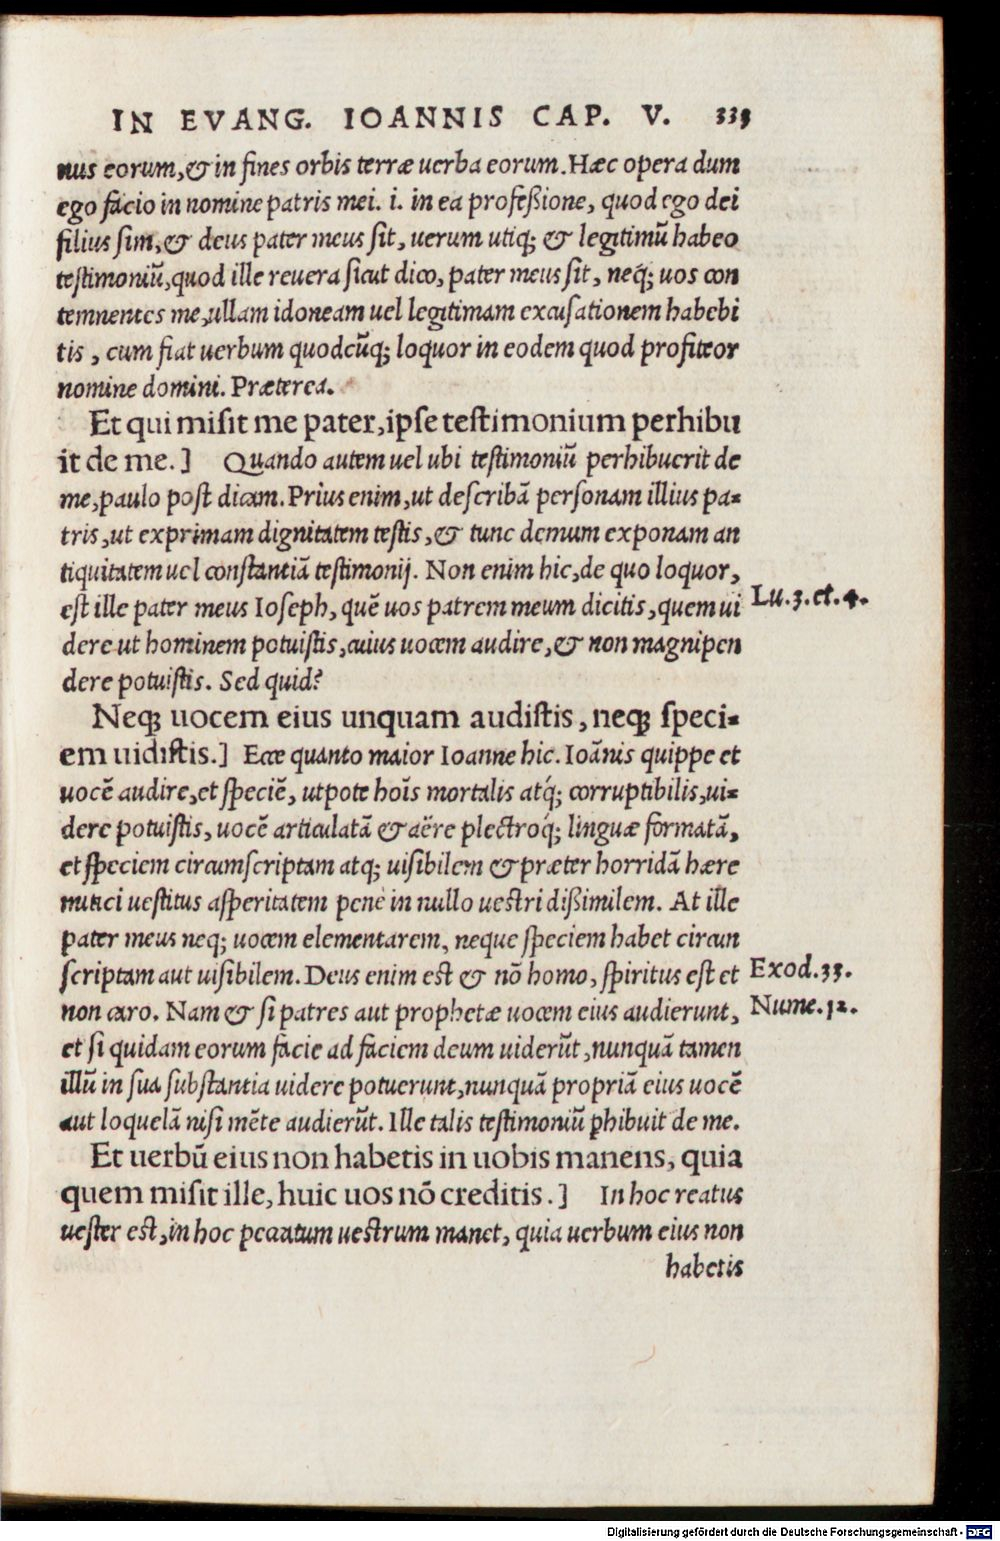 IN EVANG. IOANNIS CAP. V. 339
nus eorum, & in fines orbis terræ uerba eorum. Hæc opera dum
ego facio in nomine patris mei. i. in ea profeßione, quod ego dei
filius sim, & deus pater meus sit, uerum utiq; & legitimũ habeo
testimoniũ, quod ille reuera sicut dico, pater meus sit, neq́; uos con
temnentes me, ullam idoneam uel legitimam excusationem habebi
tis, cum fiat uerbum quodcũq; loquor in eodem quod profiteor
nomine domini. Præterea.
Et qui misit me pater, ipse testimonium perhibu
it de me.] Quando autem uel ubi testimoniũ perhibuerit de
me, paulo post dicam. Prius enim, ut describã personam illius pa-
tris, ut exprimam dignitatem testis, & tunc demum exponam an
tiquitatem uel constantiã testimonij. Non enim hic, de quo loquor,
est ille pater meus Ioseph, quẽ uos patrem meum dicitis, quem ui
Lu.3.et.4.
dere ut hominem potuistis, cuius uocem audire, & non magnipen
dere potuistis. Sed quid?
Neq; uocem eius unquam audistis, neq; speci-
em uidistis.] Ecce quanto maior Ioanne hic. Ioãnis quippe et
uocẽ audire, et speciẽ, utpote hoĩs mortalis atq́; corruptibilis, ui-
dere potuistis, uocẽ articulatã & aëre plectroq́; linguæ formatã,
et speciem circumscriptam atq; uisibilem & præter horridã hære
mitici uestitus asperitatem penè in nullo uestri dißimilem. At ille
pater meus neq; uocem elementarem, neque speciem habet circun
scriptam aut uisibilem. Deus enim est & nõ homo, spiritus est et
Exod.33.
non caro. Nam & si patres aut prophetæ uocem eius audierunt,
Nume.12.
et si quidam eorum facie ad faciem deum uiderũt, nunquã tamen
illũ in sua substantia uidere potuerunt, nunquã propriã eius uocẽ
aut loquelã nisi mẽte audierũt. Ille talis testimoniũ ꝑhibuit de me.
Et uerbũ eius non habetis in uobis manens, quia
quem misit ille, huic uos nõ creditis.] In hoc reatus
uester est, in hoc peccatum uestrum manet, quia uerbum eius non
habetis
Digitalisierung gefördert durch die Deutsche Forschungsgemeinschaft - DFG